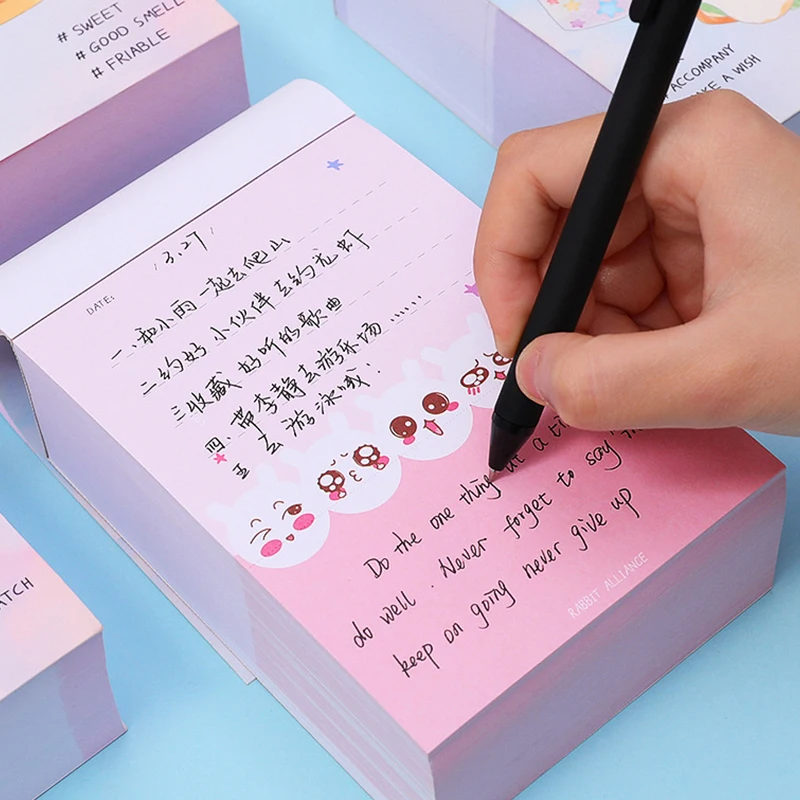 # SWEET
# GOOD SMELL
# FRIABLE
ACCOMPANY
A WISH
3.27
DATE:
一、和小雨一起去爬山
二约好小伙伴去钓龙虾
三收藏好听的歌曲
四、带李静去游乐场……
五 去游泳哦.
Do the one thing at a
do well. Never forget to say
keep on going never give up
RABBIT ALLIANCE